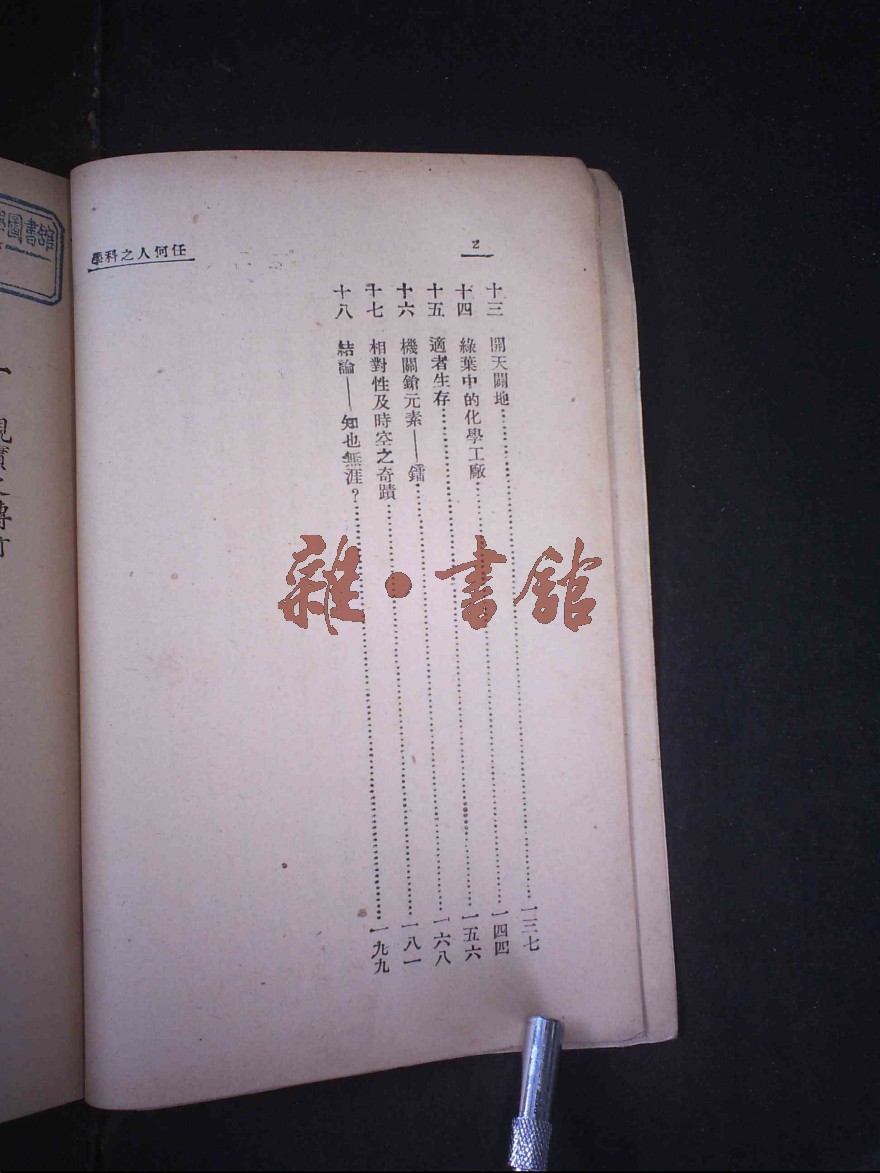 2
任何人之科學
十三 開天闢地 一三七
十四 綠葉中的化學工廠 一四四
十五 適者生存 一五六
十六 機關鎗元素——鐳 一六八
十七 相對性及時空之奇蹟 一八一
十八 結論——知也無涯？ 一九九
雜·書館
圖書館